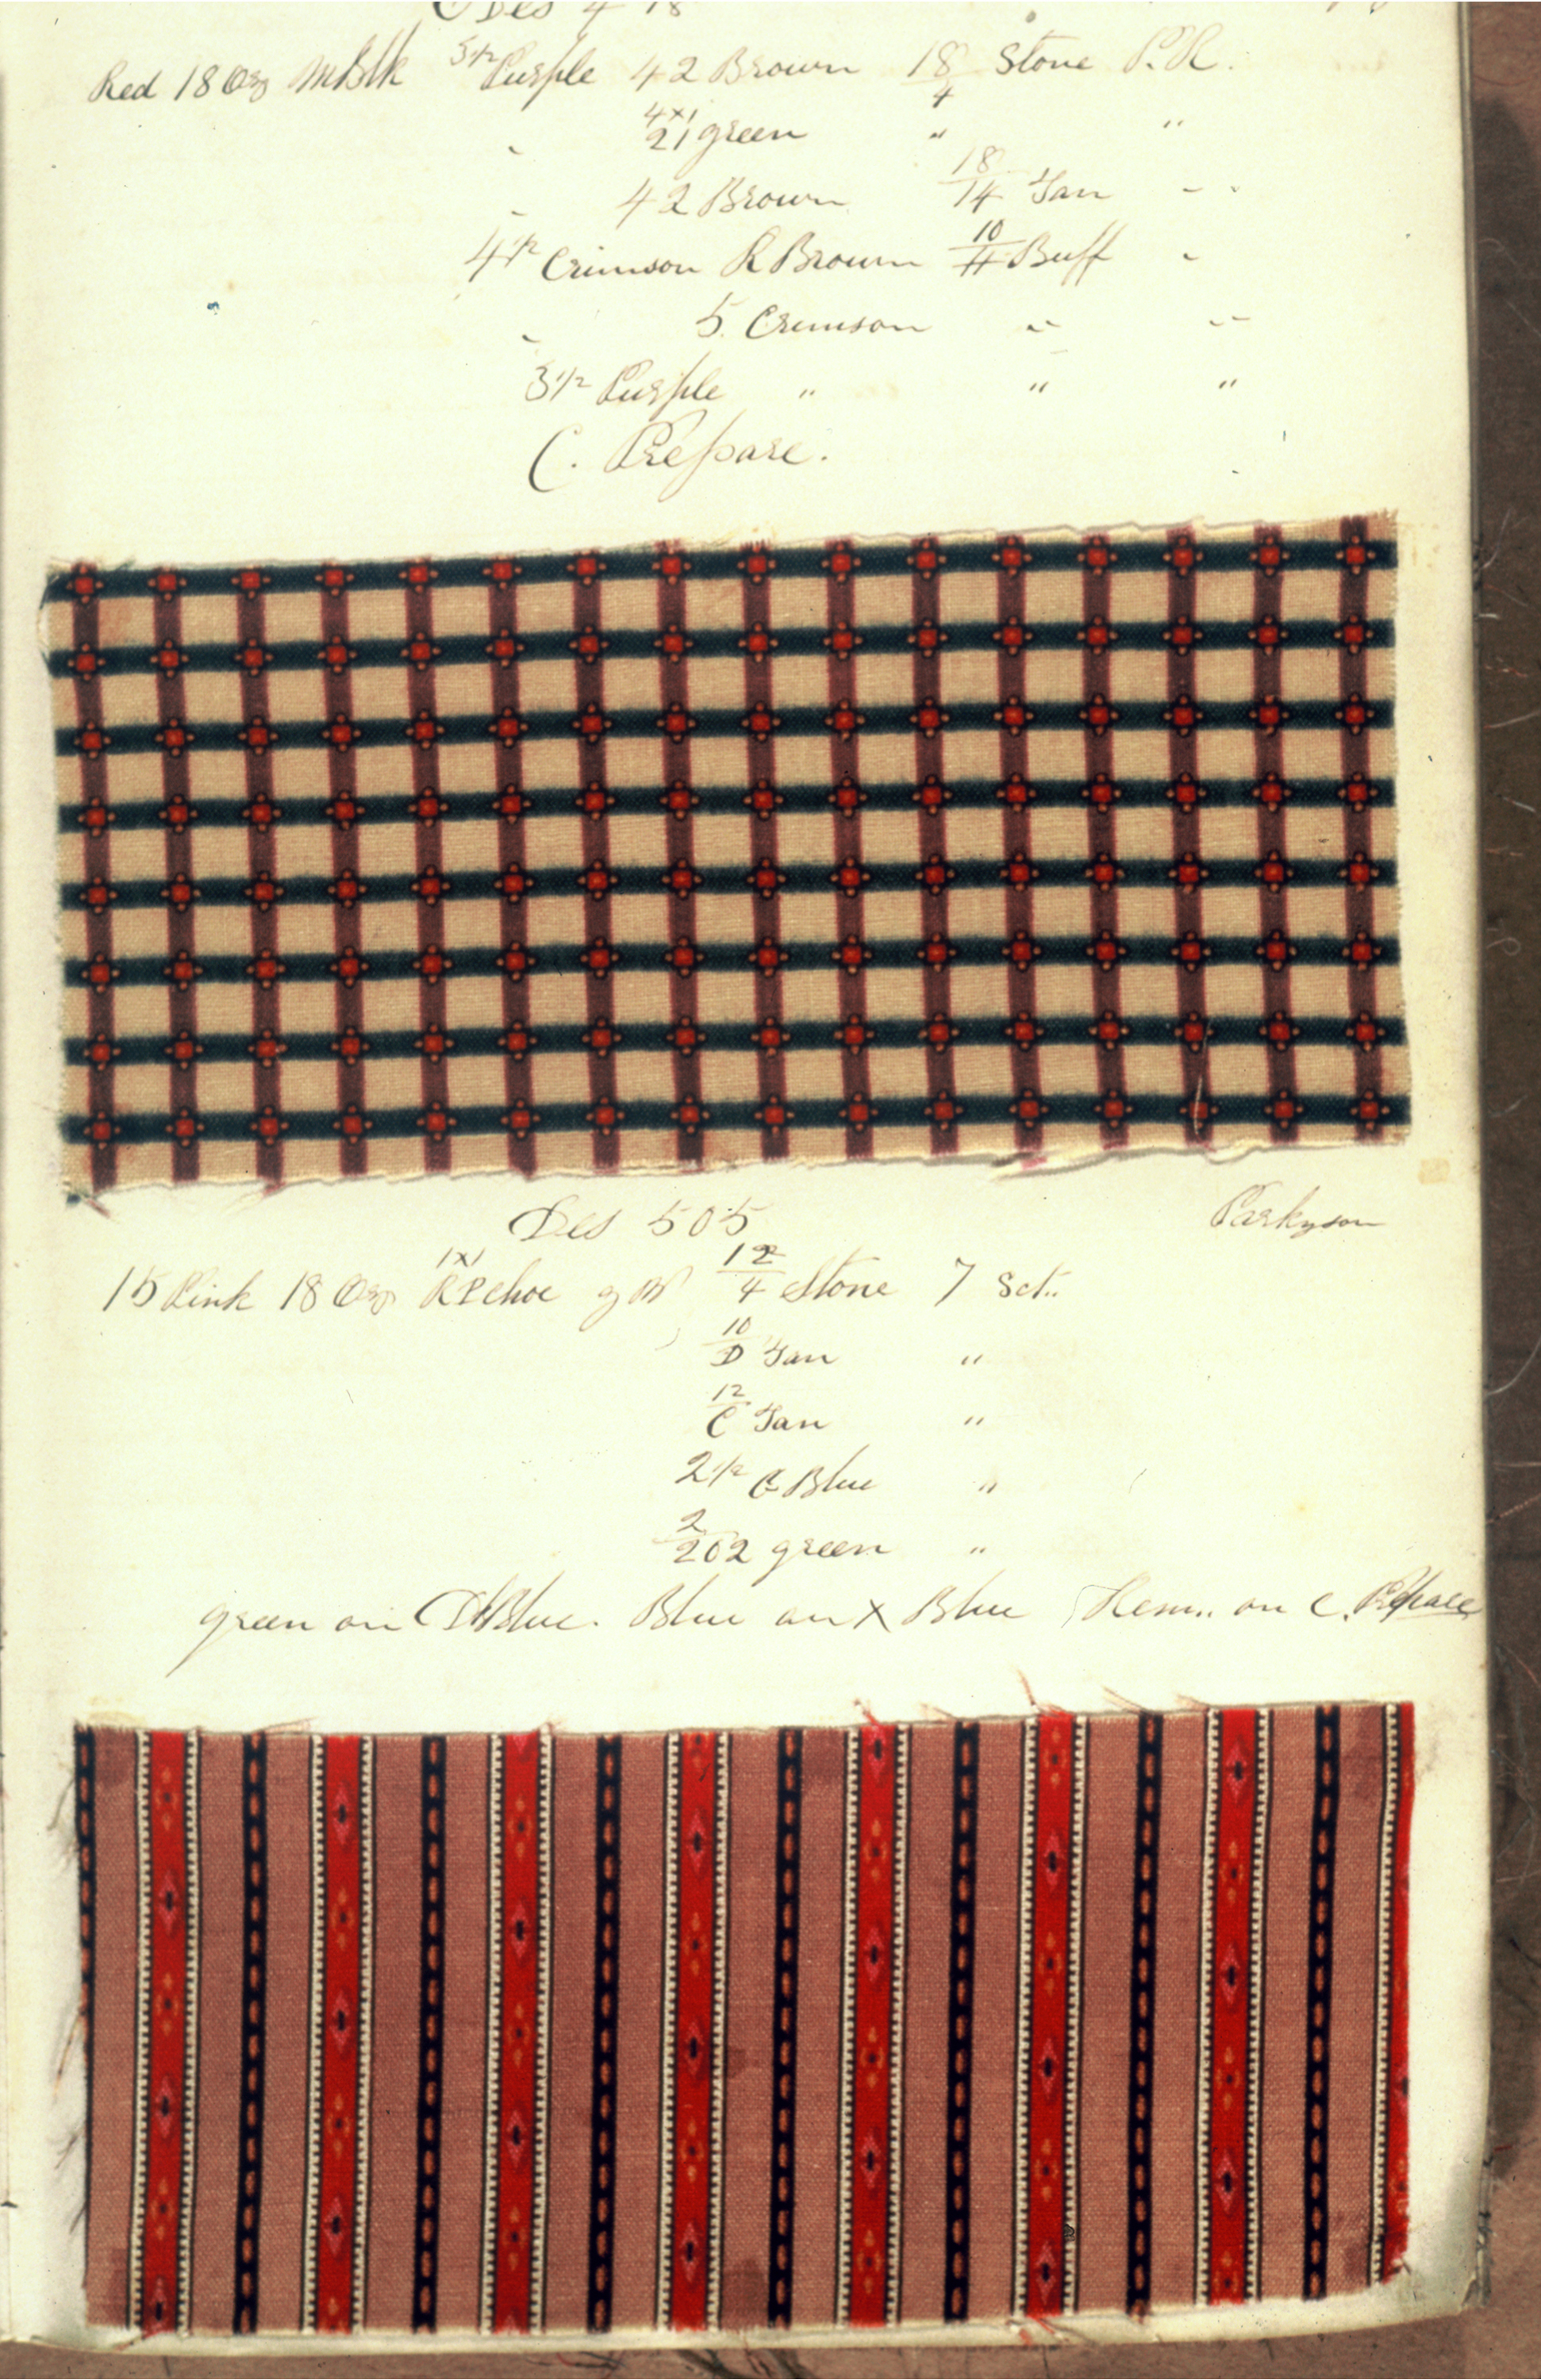 Des 4 18
Red 18 Ozs MBlk 3½ Purple 42 Brown 18/4 Stone P.R.
" 4x1 21 green " "
" 42 Brown 18/14 Tan " "
4½ Crimson R Brown 10/H Buff "
" 5 Crimson " "
3½ Purple " " "
C. Prepare.
Des 505 Parkyson
15 Pink 18 Ozs 1x1 RPchoc 12/4 Stone 7 Sct..
10/D Tan "
12/C Tan "
2½ C Blue "
2/202 green "
green on Blue. Blue on X Blue Hem.. on C. Prepare